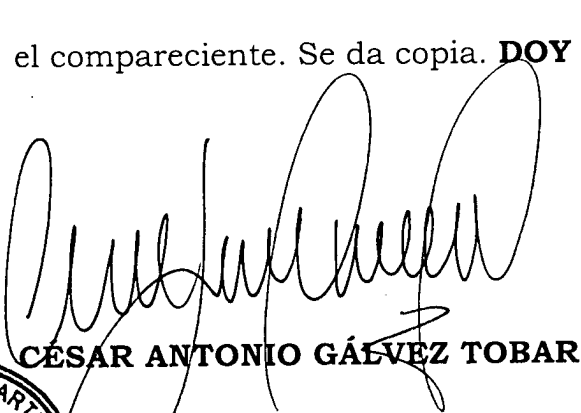 el compareciente. Se da copia. DOY
CÉSAR ANTONIO GÁLVEZ TOBAR
ART